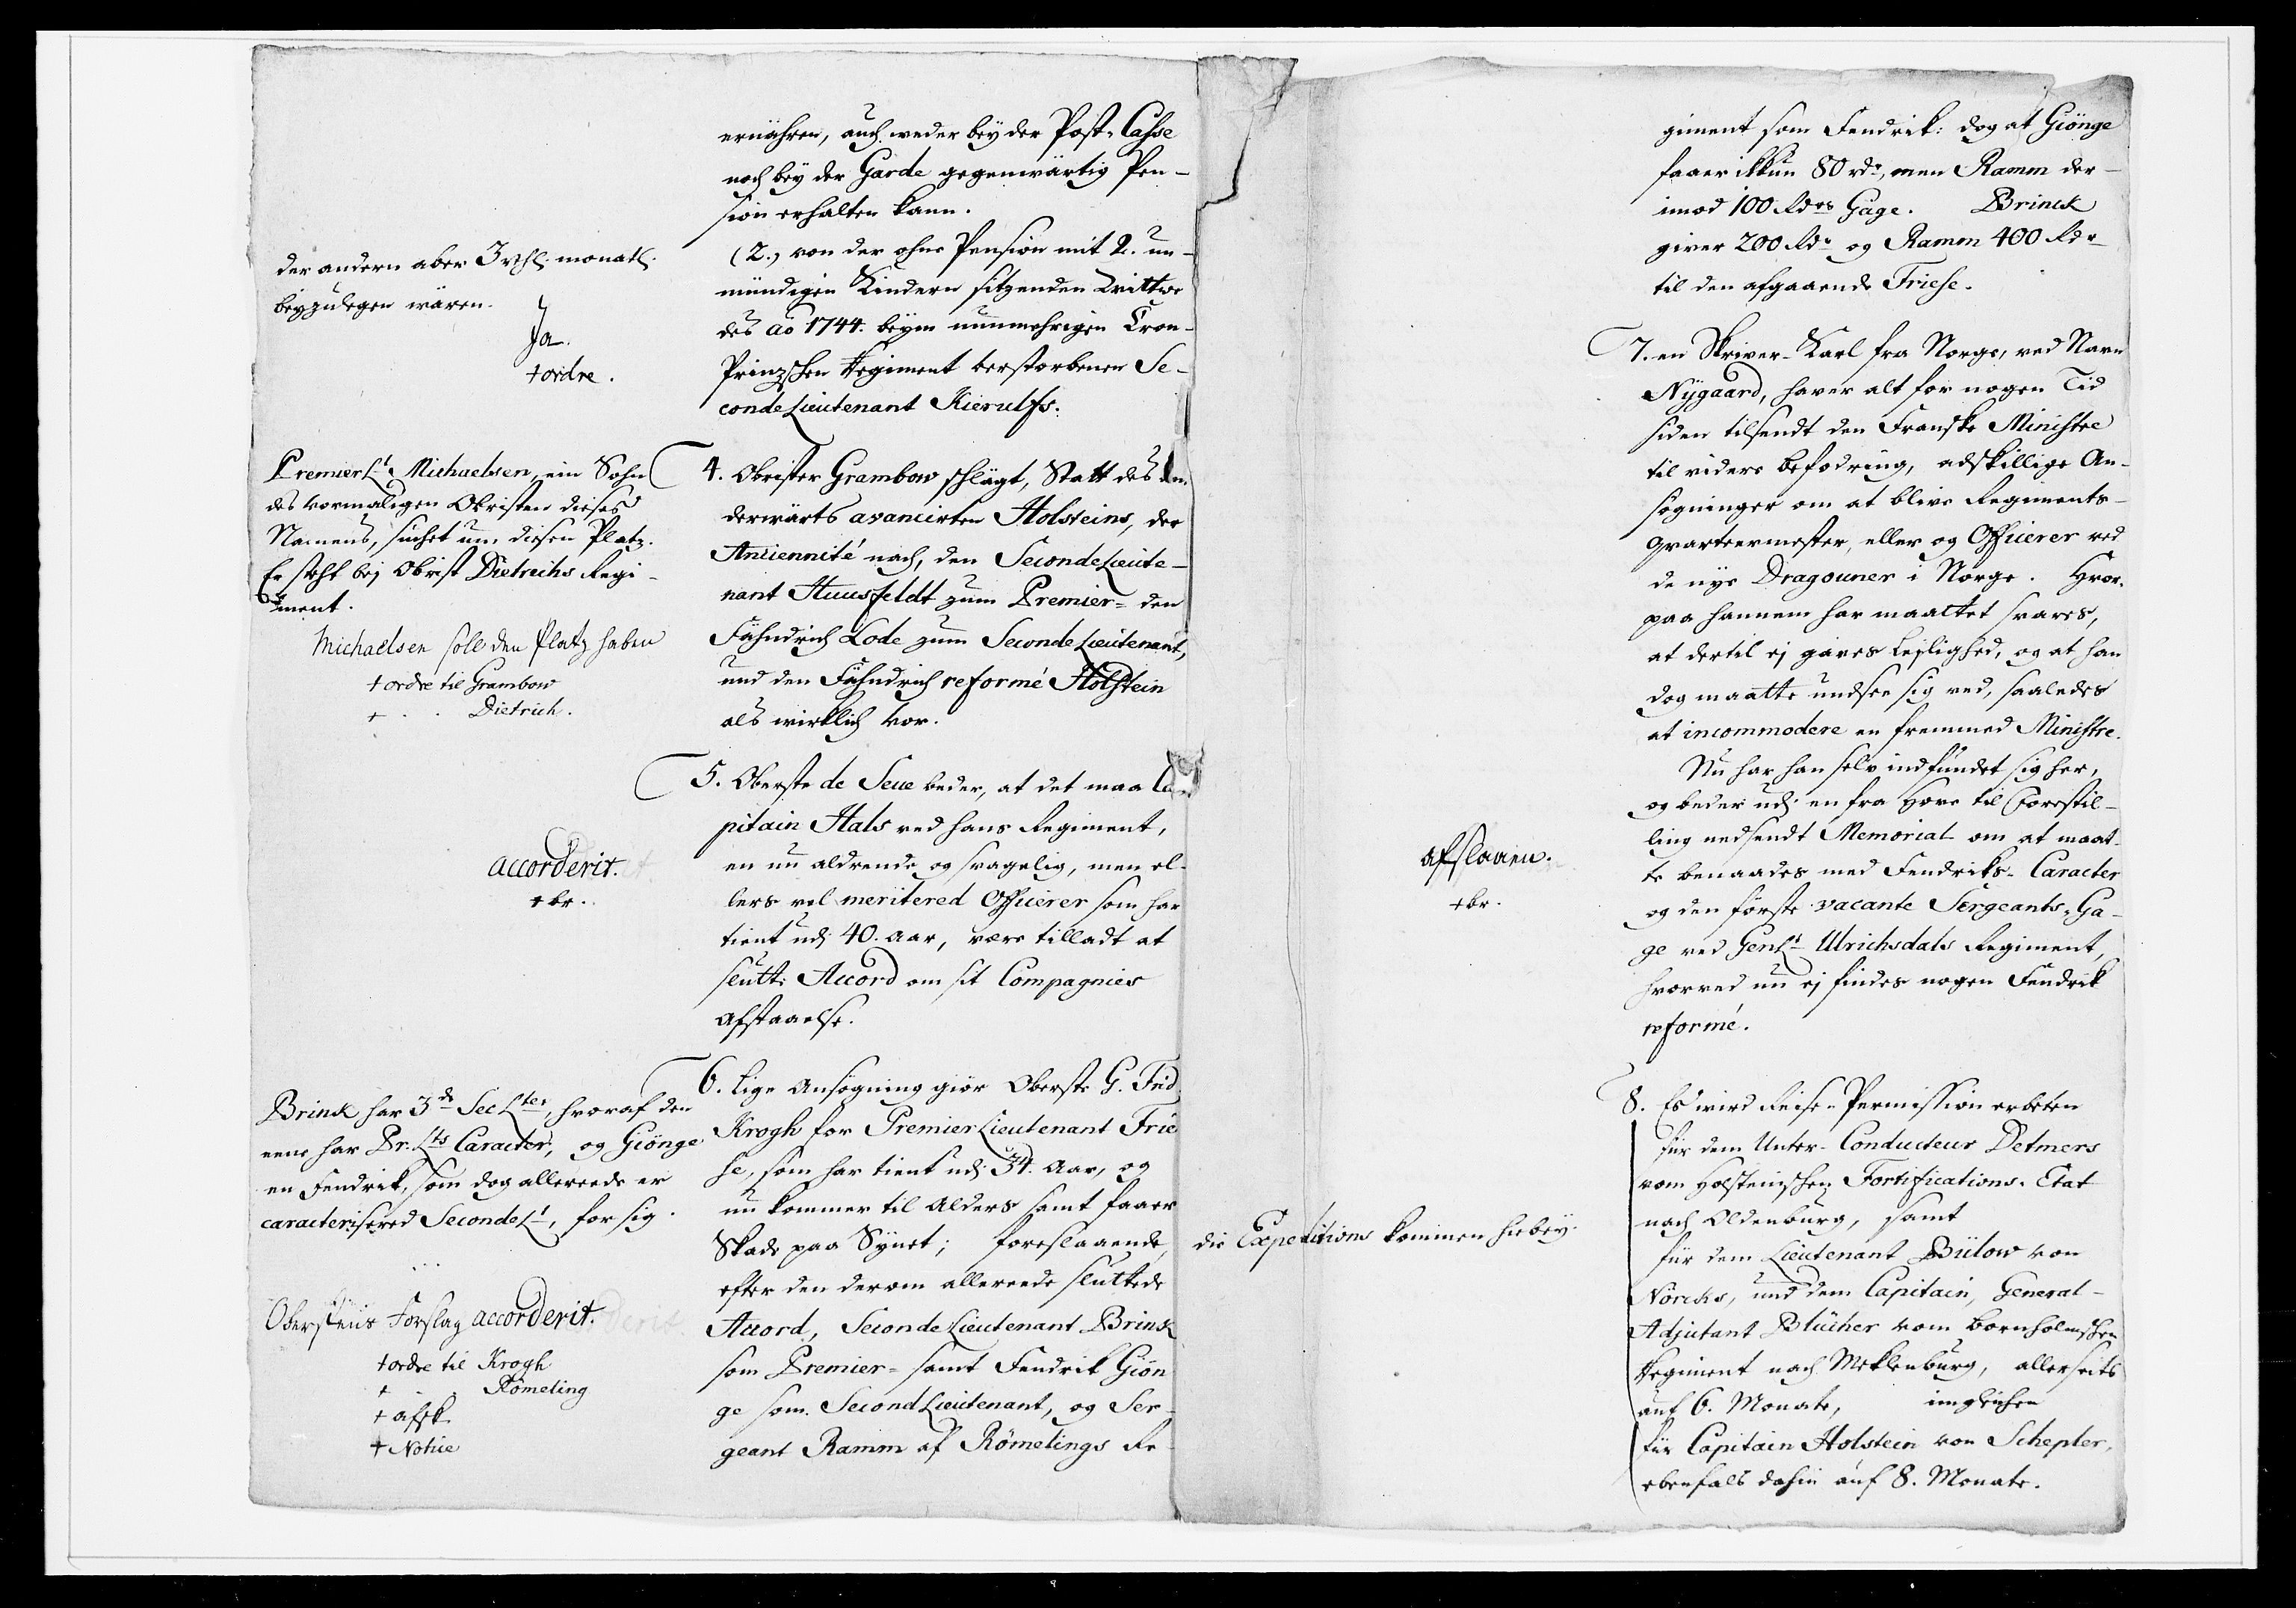 ernähren, auch weder bey der Post-Casse
noch bey der Garde gegenwärtig Pen-
sion erhalten kann.
(2.) von der ohne Pension mit 2. un-
mündigen Kindern sitzenden Wittwe
des ao 1744. beym nunmehrigen Cron-
Prinzschen Regiment verstorbenen Se-
conde Lieutenant Kierulfs.
der andern aber 3 rthl. monatl.
beyzulegen wären.
Ja.
+ ordre.
4. Obrister Grambow schlägt, Statt des an-
derwärts avancirten Holsteins, der
Anciennité nach, den Seconde Lieute-
nant Huusfeldt zum Premier- den
Fähndrich Lode zum Seconde Lieutenant,
und den Fähndrich reformé Holstein
als wirklich vor.
Premier Lt Michaelsen, ein Sohn
des vormaligen Obristen dieses
Namens, suchet um diesen Platz.
Er steht bej Obrist Dietrichs Regi-
ment.
Michaelsen soll den Platz haben
+ ordre til Grambow
+ . . Dietrich.
5. Oberste de Seue beder, at det maa Ca-
pitain Hals ved hans Regiment,
en nu aldrende og svagelig, men el-
lers vel meritered Officerer som har
tient udj 40. Aar, være tilladt at
slutte Accord om sit Compagnies
Afstaaelse.
accorderit.
+ br.
6. Lige Ansøgning giør Oberste G. Frid
Krogh for Premier Lieutenant Frie
se, som har tient udj 34. Aar, og
nu kommer til Alders samt faaer
Skade paa Synet; foreslaaende,
efter den derom allereede sluttede
Accord, Seconde Lieutenant Brink
som Premier- samt Fendrik Giön
ge som Second Lieutenant, og Ser-
geant Ramm af Römelings Re
Brink har 3de Sec Lter, hvoraf den
eene har Pr. Lts Caracter, og Giönge
en Fendrik, som dog allereede er
caracterisered Seconde Lt, for sig.
Oberstens Forslag accorderit.
+ ordre til Krogh
+ . . Römeling
+ afsk.
+ Notice
giment som Fendrik: dog at Giönge
faaer ikkun 80 rdr, men Ramm der-
imod 100 Rdrs Gage. Brinck
giver 200 Rdr og Ramm 400 Rdr
til den afgaaende Friese.
7. en Skriver-Karl fra Norge, ved Navn
Nygaard, haver alt for nogen Tid
siden tilsendt den Franske Ministre
til videre befodring, adskillige An-
søgninger om at blive Regiments-
Qvarteermester, eller og Officerer ved
de nye Dragouner i Norge. Hvor-
paa hannem har maattet svares,
at dertil ej gives Lejlighed, og at han
dog maatte undsee sig ved, saaledes
at incommodere en fremmed Ministre.
Nu har han selv indfundet sig her,
og beder udj en fra Hove til Forestil-
ling nedsendt Memorial om at maat-
te benaades med Fendriks-Caracter
og den første vacante Sergeants-Ga-
ge ved GenLt Ulrichsdals Regiment,
hvorved nu ej findes nogen Fendrik
reformé.
afslaaen.
+ br.
8. Es wird Reise-Permission erbeten
für dem Unter-Conducteur Detmers
vom Holsteinschen Fortifications-Etat
nach Oldenburg, samt
für dem Lieutenant Bülow von
Nörcks, und dem Capitain, General-
Adjutant Blücher vom Bornholmschen
Regiment nach Meklenburg, allerseits
auf 6. Monate, imgleichen
für Capitain Holstein von Schepler,
ebenfals dahin auf 8. Monate.
die Expeditions kommen hiebey.